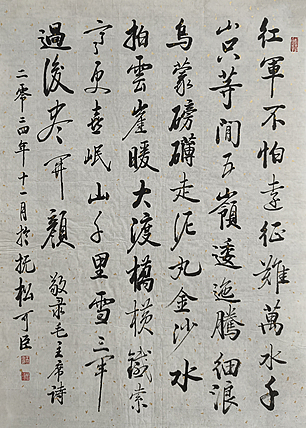 红軍不怕远征難萬水千
山只等閒五嶺逶迤騰细浪
烏蒙磅礴走泥丸金沙水
拍雲崖暖大渡橋横鐵索
寒更喜岷山千里雪三军
過後尽开顔
敬录毛主席诗
二零二四年十一月於抚松可臣